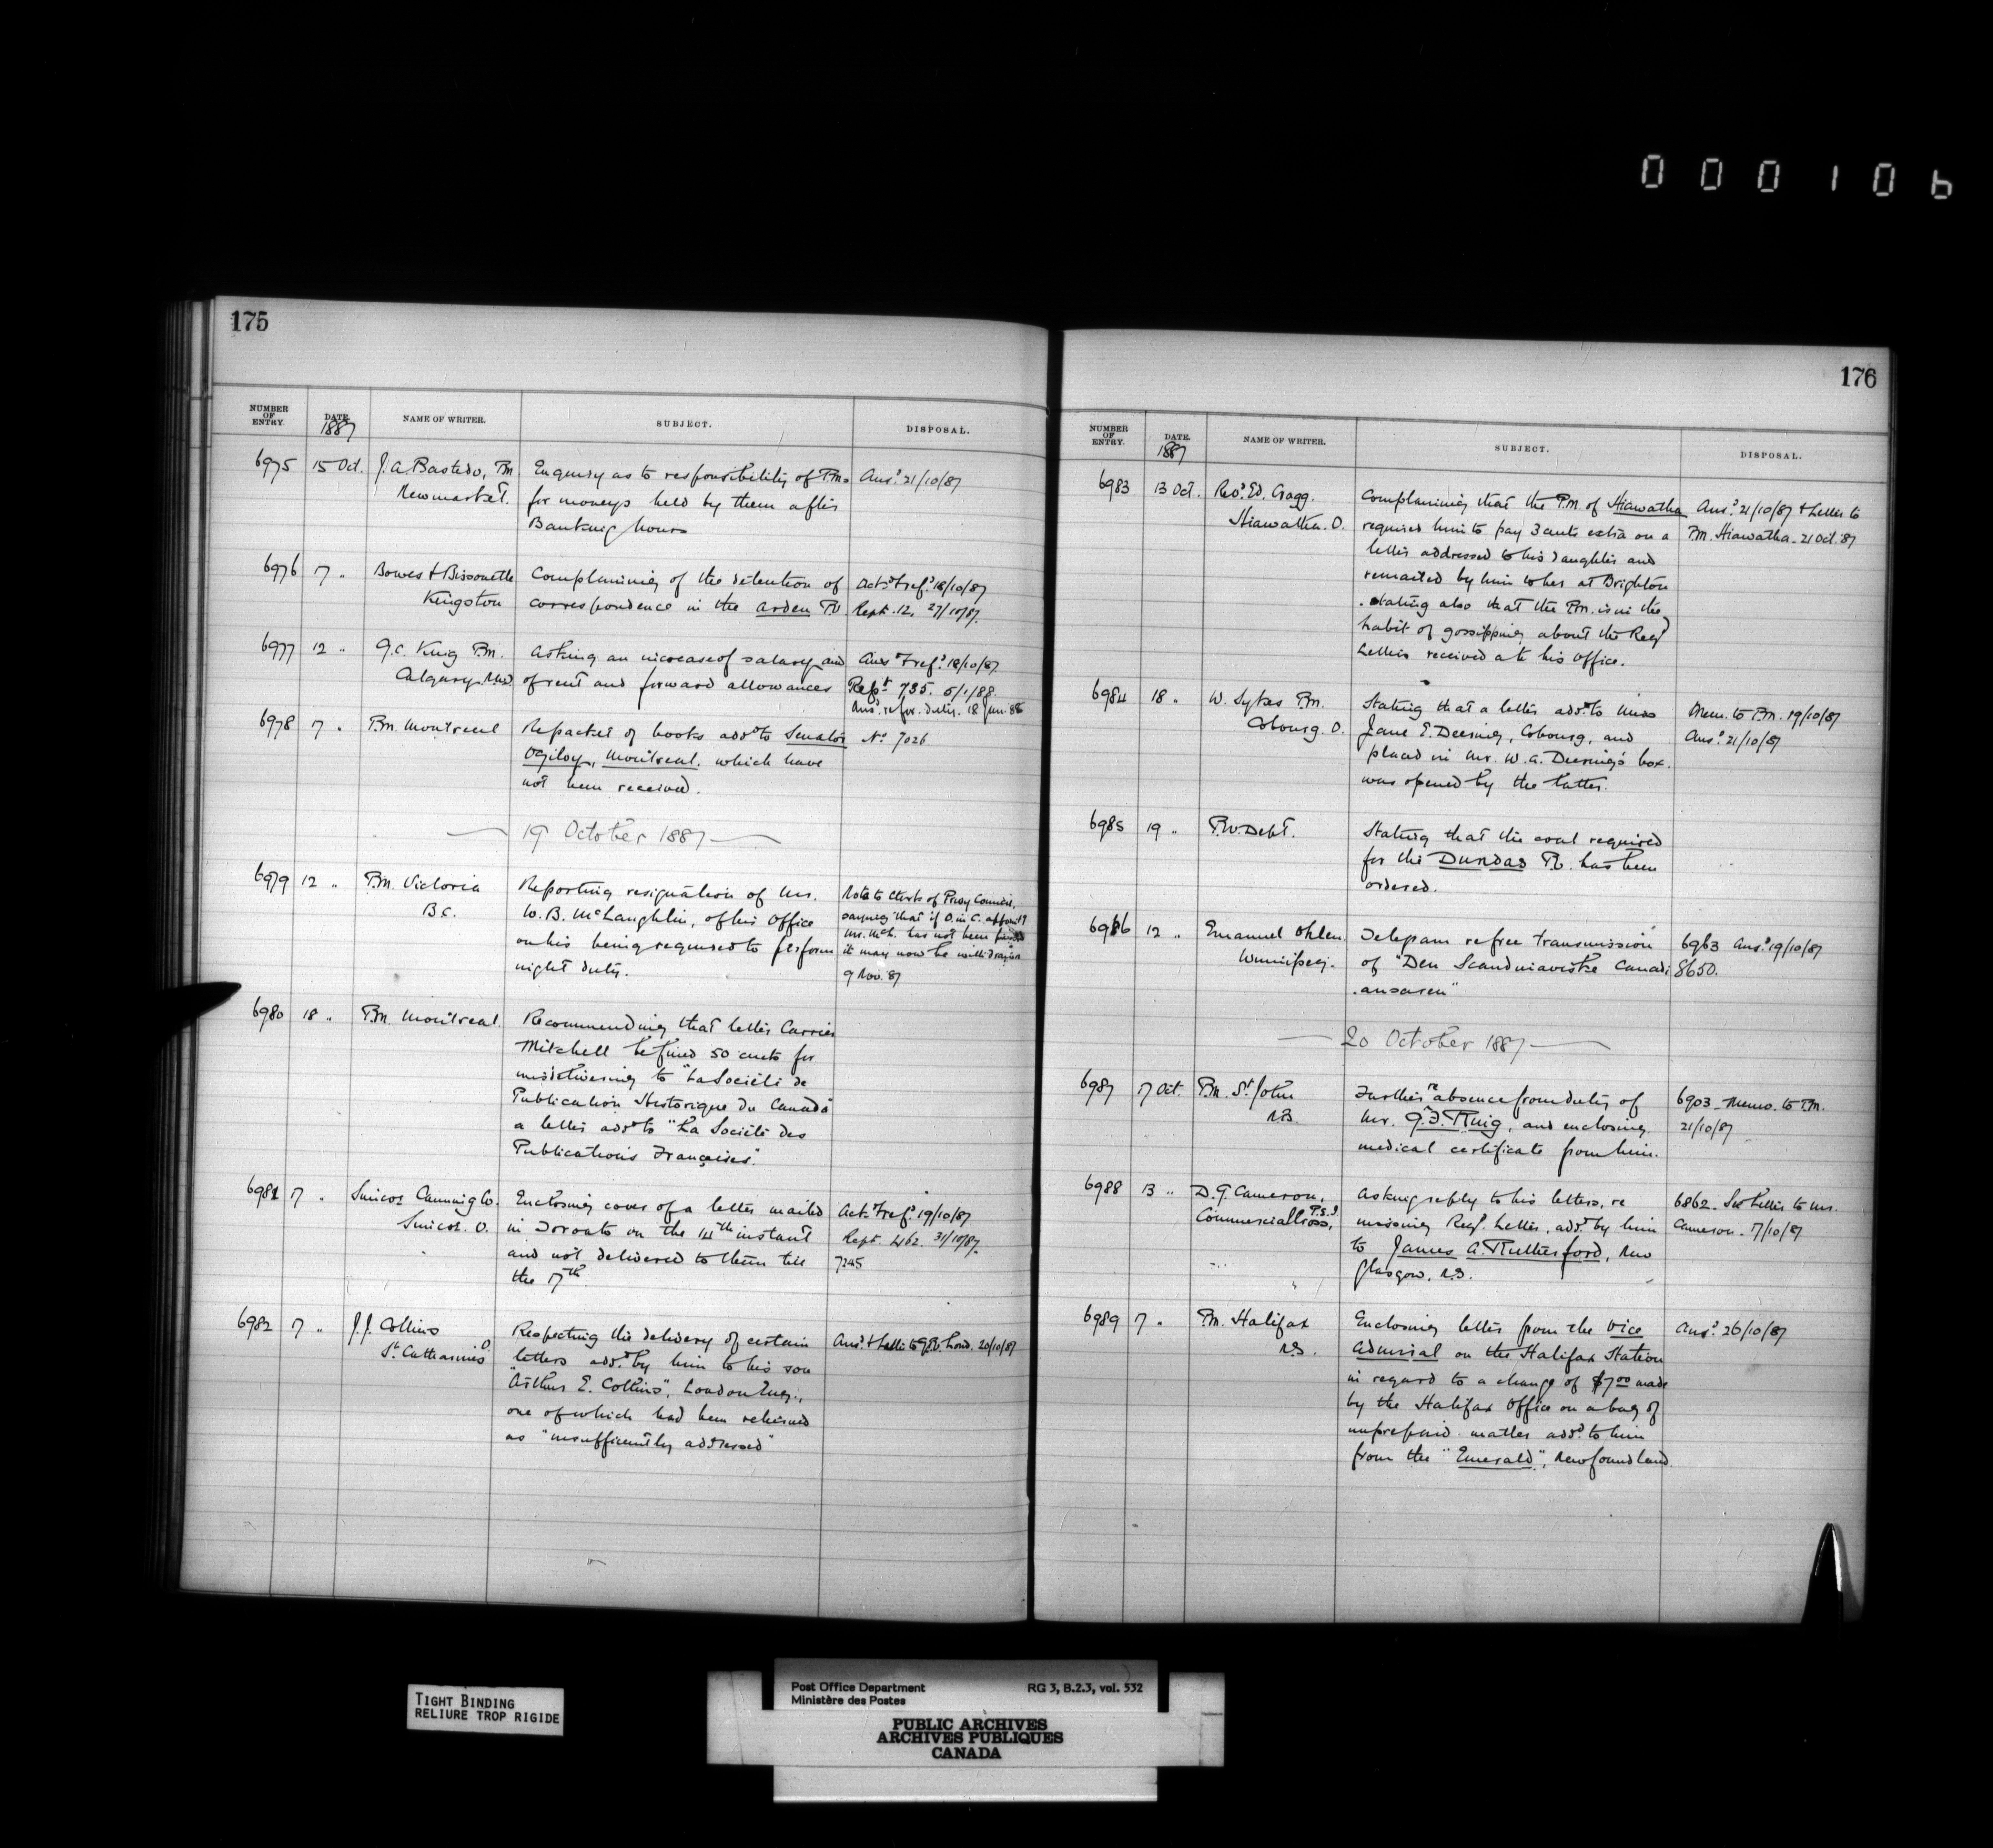 000106
175
NUMBER OF ENTRY. DATE. 1887 NAME OF WRITER. SUBJECT. DISPOSAL.
6975 15 Oct. J. A. Bastedo, P.M. Enquiry as to responsibility of P.Ms Ansd. 21/10/87
Newmarket. for moneys held by them after
Banking hours
6976 17 " Bowes & Bissonette Complaining of the detention of Actd. & refd. 18/10/87
Kingston correspondence in the Arden P.O Rept. 12, 27/10/87.
6977 12 " G. C. King P.M. Asking an increase of salary and Ansd & refd. 18/10/87.
Calgary. N.W.T of rent and forward allowances Rept. 735. 5/1/88.
Ansd. 18 Jan. 88
6978 17 " P.M. Montreal Re packet of books addd to Senator No. 7026
Ogilvy, Montreal. which have
not been received.
19 October 1887
6979 12 " P.M. Victoria Reporting resignation of Mr. Note to Clerk of Privy Council.
B.C. W. B. McLaughlin, of his Office saying that if O. in C. appointg
on his being required to perform Mr. McL. has not been passed
night duty. it may now be withdrawn
9 Nov. 87
6980 18 " P.M. Montreal. Recommending that letter Carrier
Mitchell be fined 50 cents for
misdelivering to "La Société de
Publication Historique du Canada"
a letter addd to "La Société des
Publications Françaises".
6981 17 " Simcoe Canning Co. Enclosing cover of a letter mailed Actd. & refd. 19/10/87
Simcoe. O. in Toronto on the 14th instant Rept. 462. 31/10/87.
and not delivered to them till 7245
the 17th.
6982 17 " J. J. Collins Respecting the delivery of certain Ansd. & Letter to G.P.O. Lond. 20/10/87
St. Catharines O. letters addd. by him to his son
"Arthur E. Collins", London Eng.,
one of which had been returned
as "insufficiently addressed"
176
NUMBER OF ENTRY. DATE. 1887 NAME OF WRITER. SUBJECT. DISPOSAL.
6983 13 Oct. Revd. Ed. Cragg. Complaining that the P.M. of Hiawatha Ansd. 21/10/87 & Letter to
Hiawatha. O. required him to pay 3 cents extra on a P.M. Hiawatha - 21 Oct. 87
letter addressed to his daughter and
remailed by him to her at Brighton
. Stating also that the P.M. is in the
habit of gossipping about the Regd
Letters received at his Office.
6984 18 " W. Sykes P.M. Stating that a letter addd. to Miss Mem. to P.M. 19/10/87
Cobourg. O. Jane E. Deering, Cobourg, and Ansd. 21/10/87
placed in Mr. W. A. Deering's box.
was opened by the latter.
6985 19 " P.W. Dept. Stating that the coal required
for the Dundas P.O. has been
ordered.
6986 12 " Emanuel Ohlen. Telegram re free transmission 6963 Ansd. 19/10/87
Winnipeg. of "Den Scandinaviske Canadi 8650.
.ensaren"
20 October 1887
6987 17 Oct. P.M. St John Further re absence from duty of 6903 - Memo. to P.M.
N.B. Mr. G. F. Ring, and enclosing 21/10/87
medical certificate from him.
6988 13 " D. G. Cameron, Asking reply to his letters, re 6862. See Letter to Mr.
Commercial Cross, P.E.I. missing Regd. Letter, addd. by him Cameron. 17/10/87
to James A. Rutherford, New
Glasgow, N.S.
6989 17 " P.M. Halifax Enclosing letter from the Vice Ansd. 26/10/87
N.S. Admiral on the Halifax Station
in regard to a charge of $7.00 made
by the Halifax Office on a bag of
unprepaid matter addd. to him
from the "Emerald", Newfoundland.
TIGHT BINDING
RELIURE TROP RIGIDE
Post Office Department RG 3, B.2.3, vol. 532
Ministère des Postes
PUBLIC ARCHIVES
ARCHIVES PUBLIQUES
CANADA